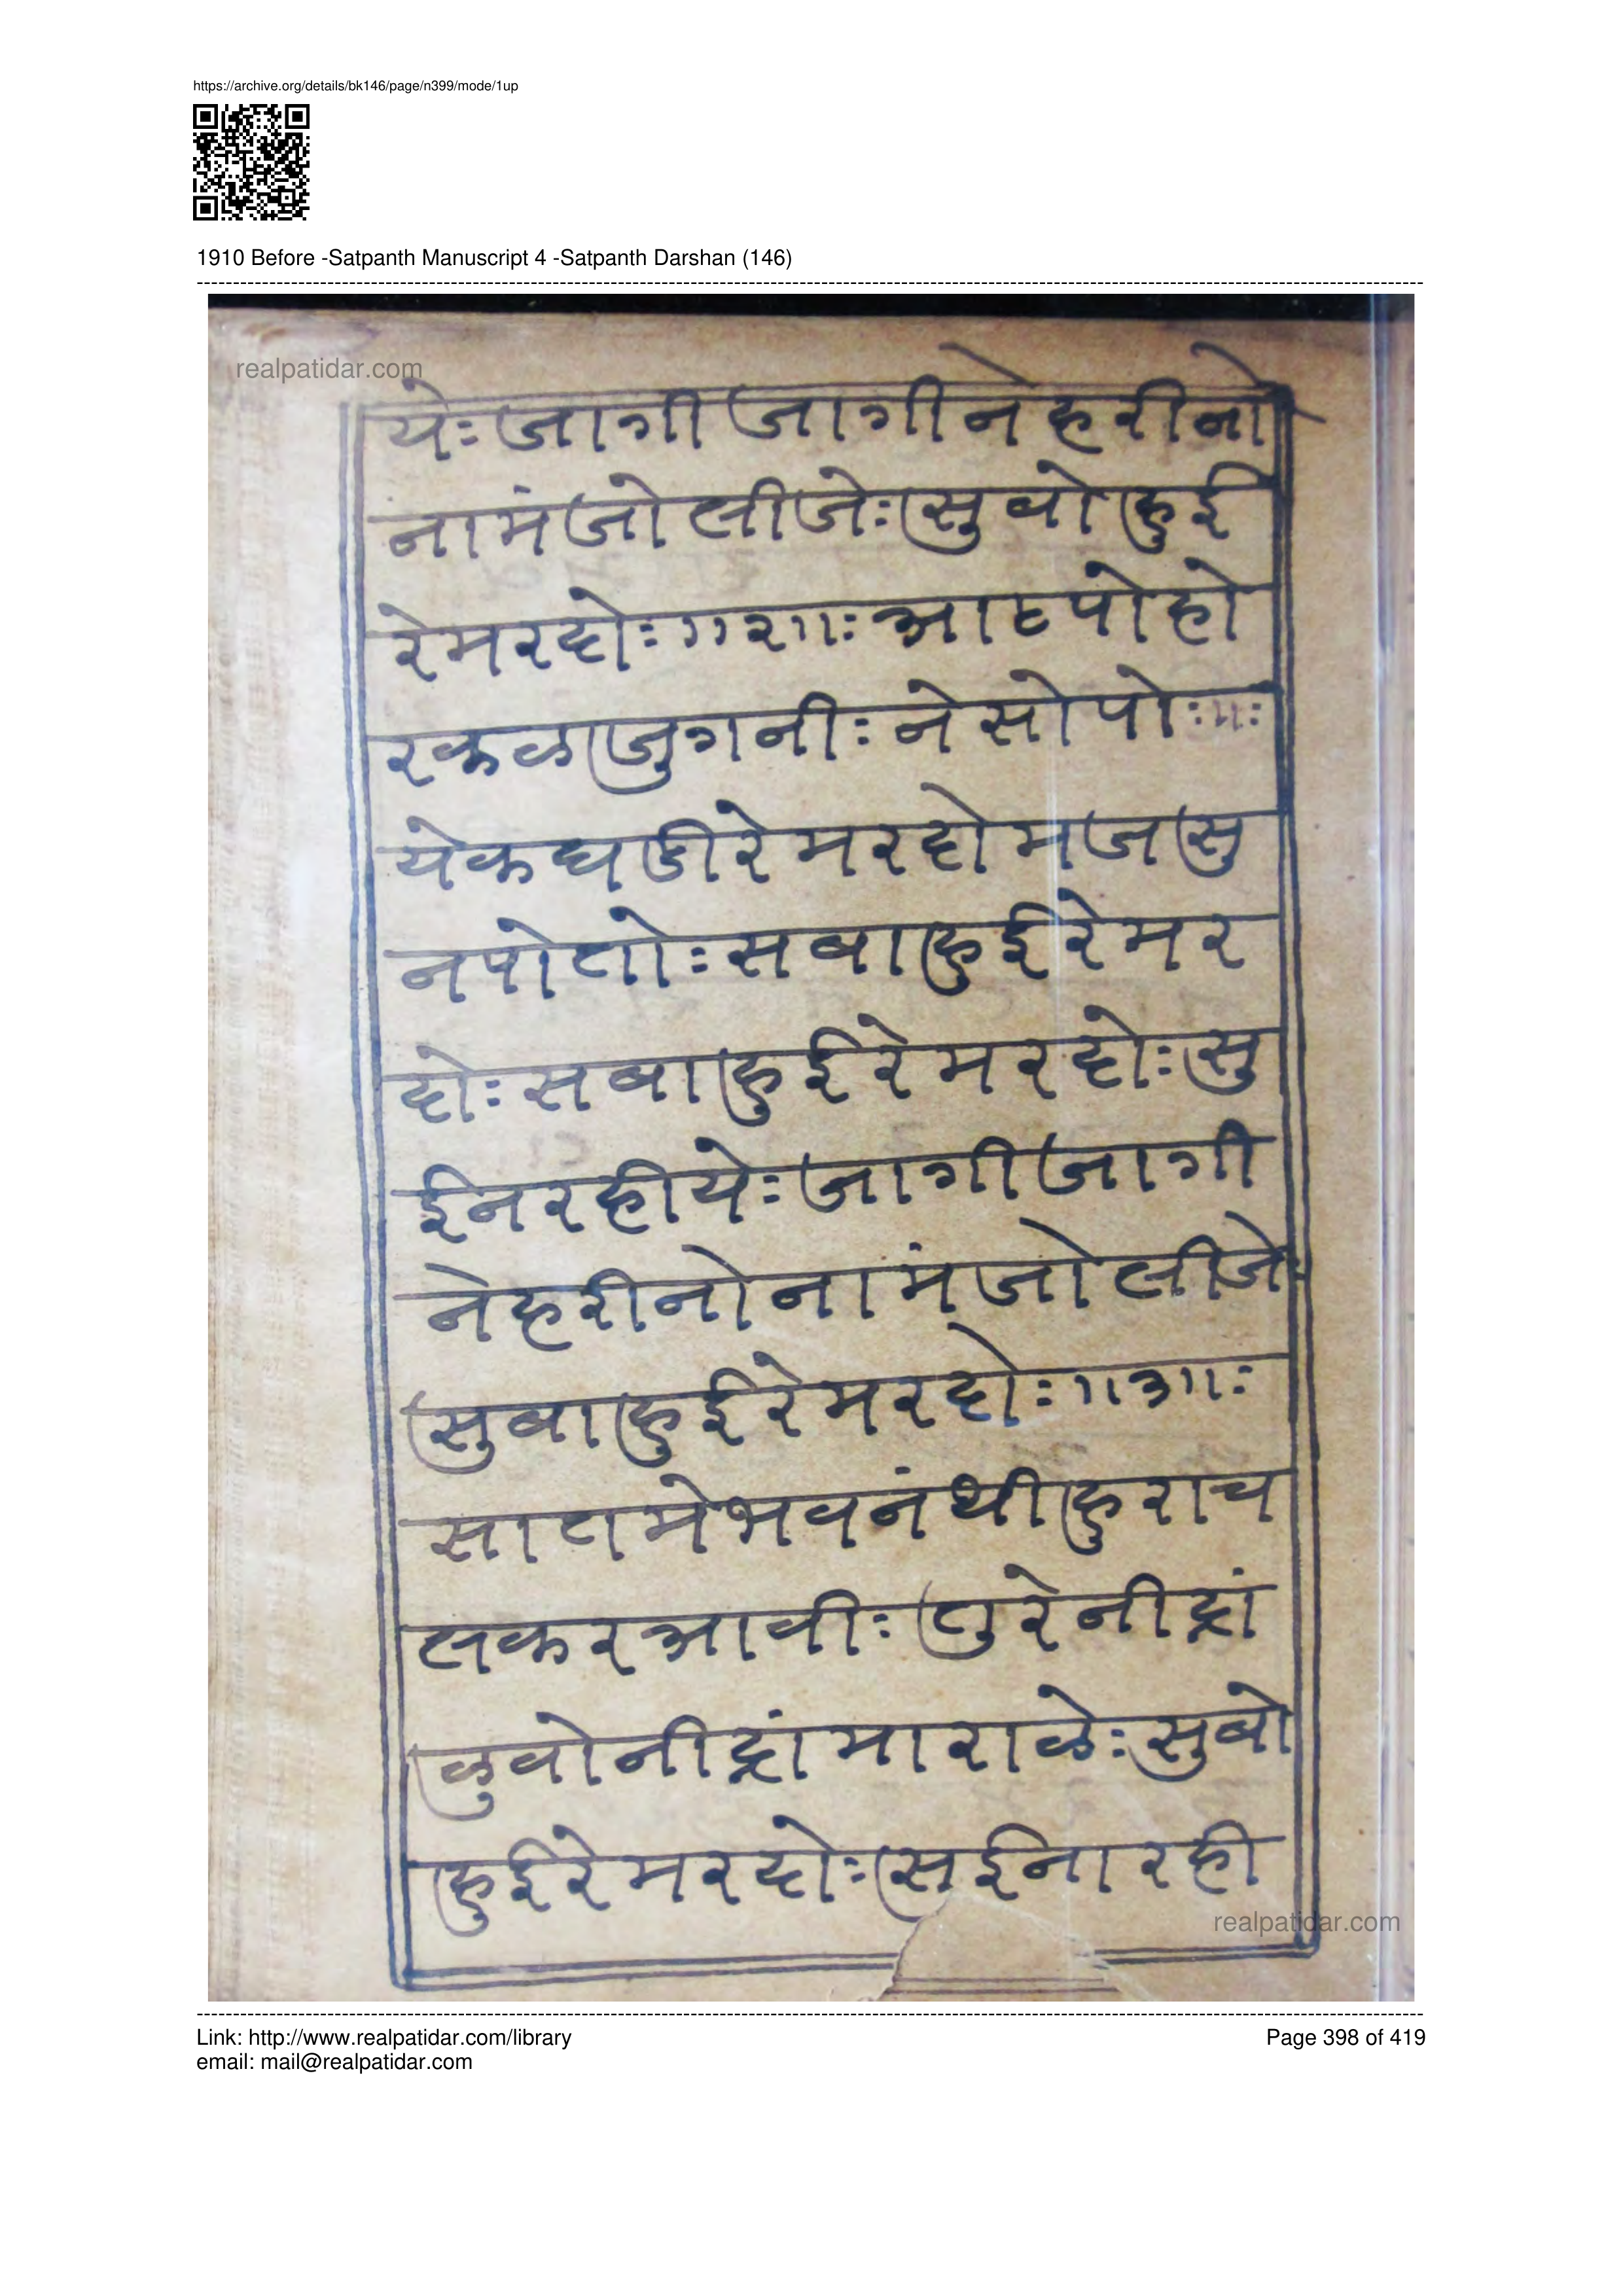 https://archive.org/details/bk146/page/n399/mode/1up
1910 Before -Satpanth Manuscript 4 -Satpanth Darshan (146)
realpatidar.com
येः जागी जागी ने हरीनो
नामं जो लीजेः सुवो हुई
रे मरदोः ॥२॥ः आठ पोहो
र कळजुगनीः ने सो पोः॥ः
येक घडी रे मरदो मजसु
न पोतोः सबा हुई रे मर
दोः सबा हुई रे मरदोः सु
ई न रहीयेः जागी जागी
ने हरीनो नामं जो लीजेः
सुबा हुई रे मरदोः ॥३॥ः
सातमे भवनं थी हुरा च
लकर आवीः तुरे नीद्रां
ळुवो नीद्रां मारा ळेः सुबो
हुई रे मरदोः सुई ना रही
realpatidar.com
Link: http://www.realpatidar.com/library
Page 398 of 419
email: mail@realpatidar.com